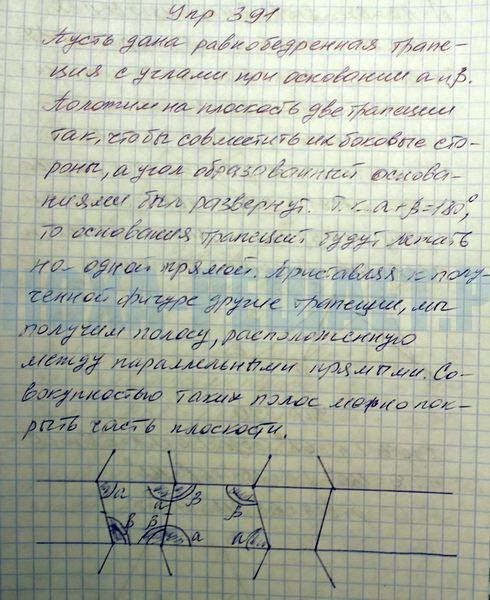 Упр 391
Пусть дана равнобедренная трапе-
ция с углами при основании α и β.
Положим на плоскость две трапеции
так, чтобы совместить их боковые сто-
роны, а угол образованный основа-
ниями был развернут. Т.к. α+β=180°,
то основания трапеций будут лежать
на одной прямой. Приставляя к полу-
ченной фигуре другие трапеции, мы
получим полосу, расположенную
между параллельными прямыми. Со-
вокупностью таких полос можно пок-
рыть часть плоскости.
α α β β
β β α α